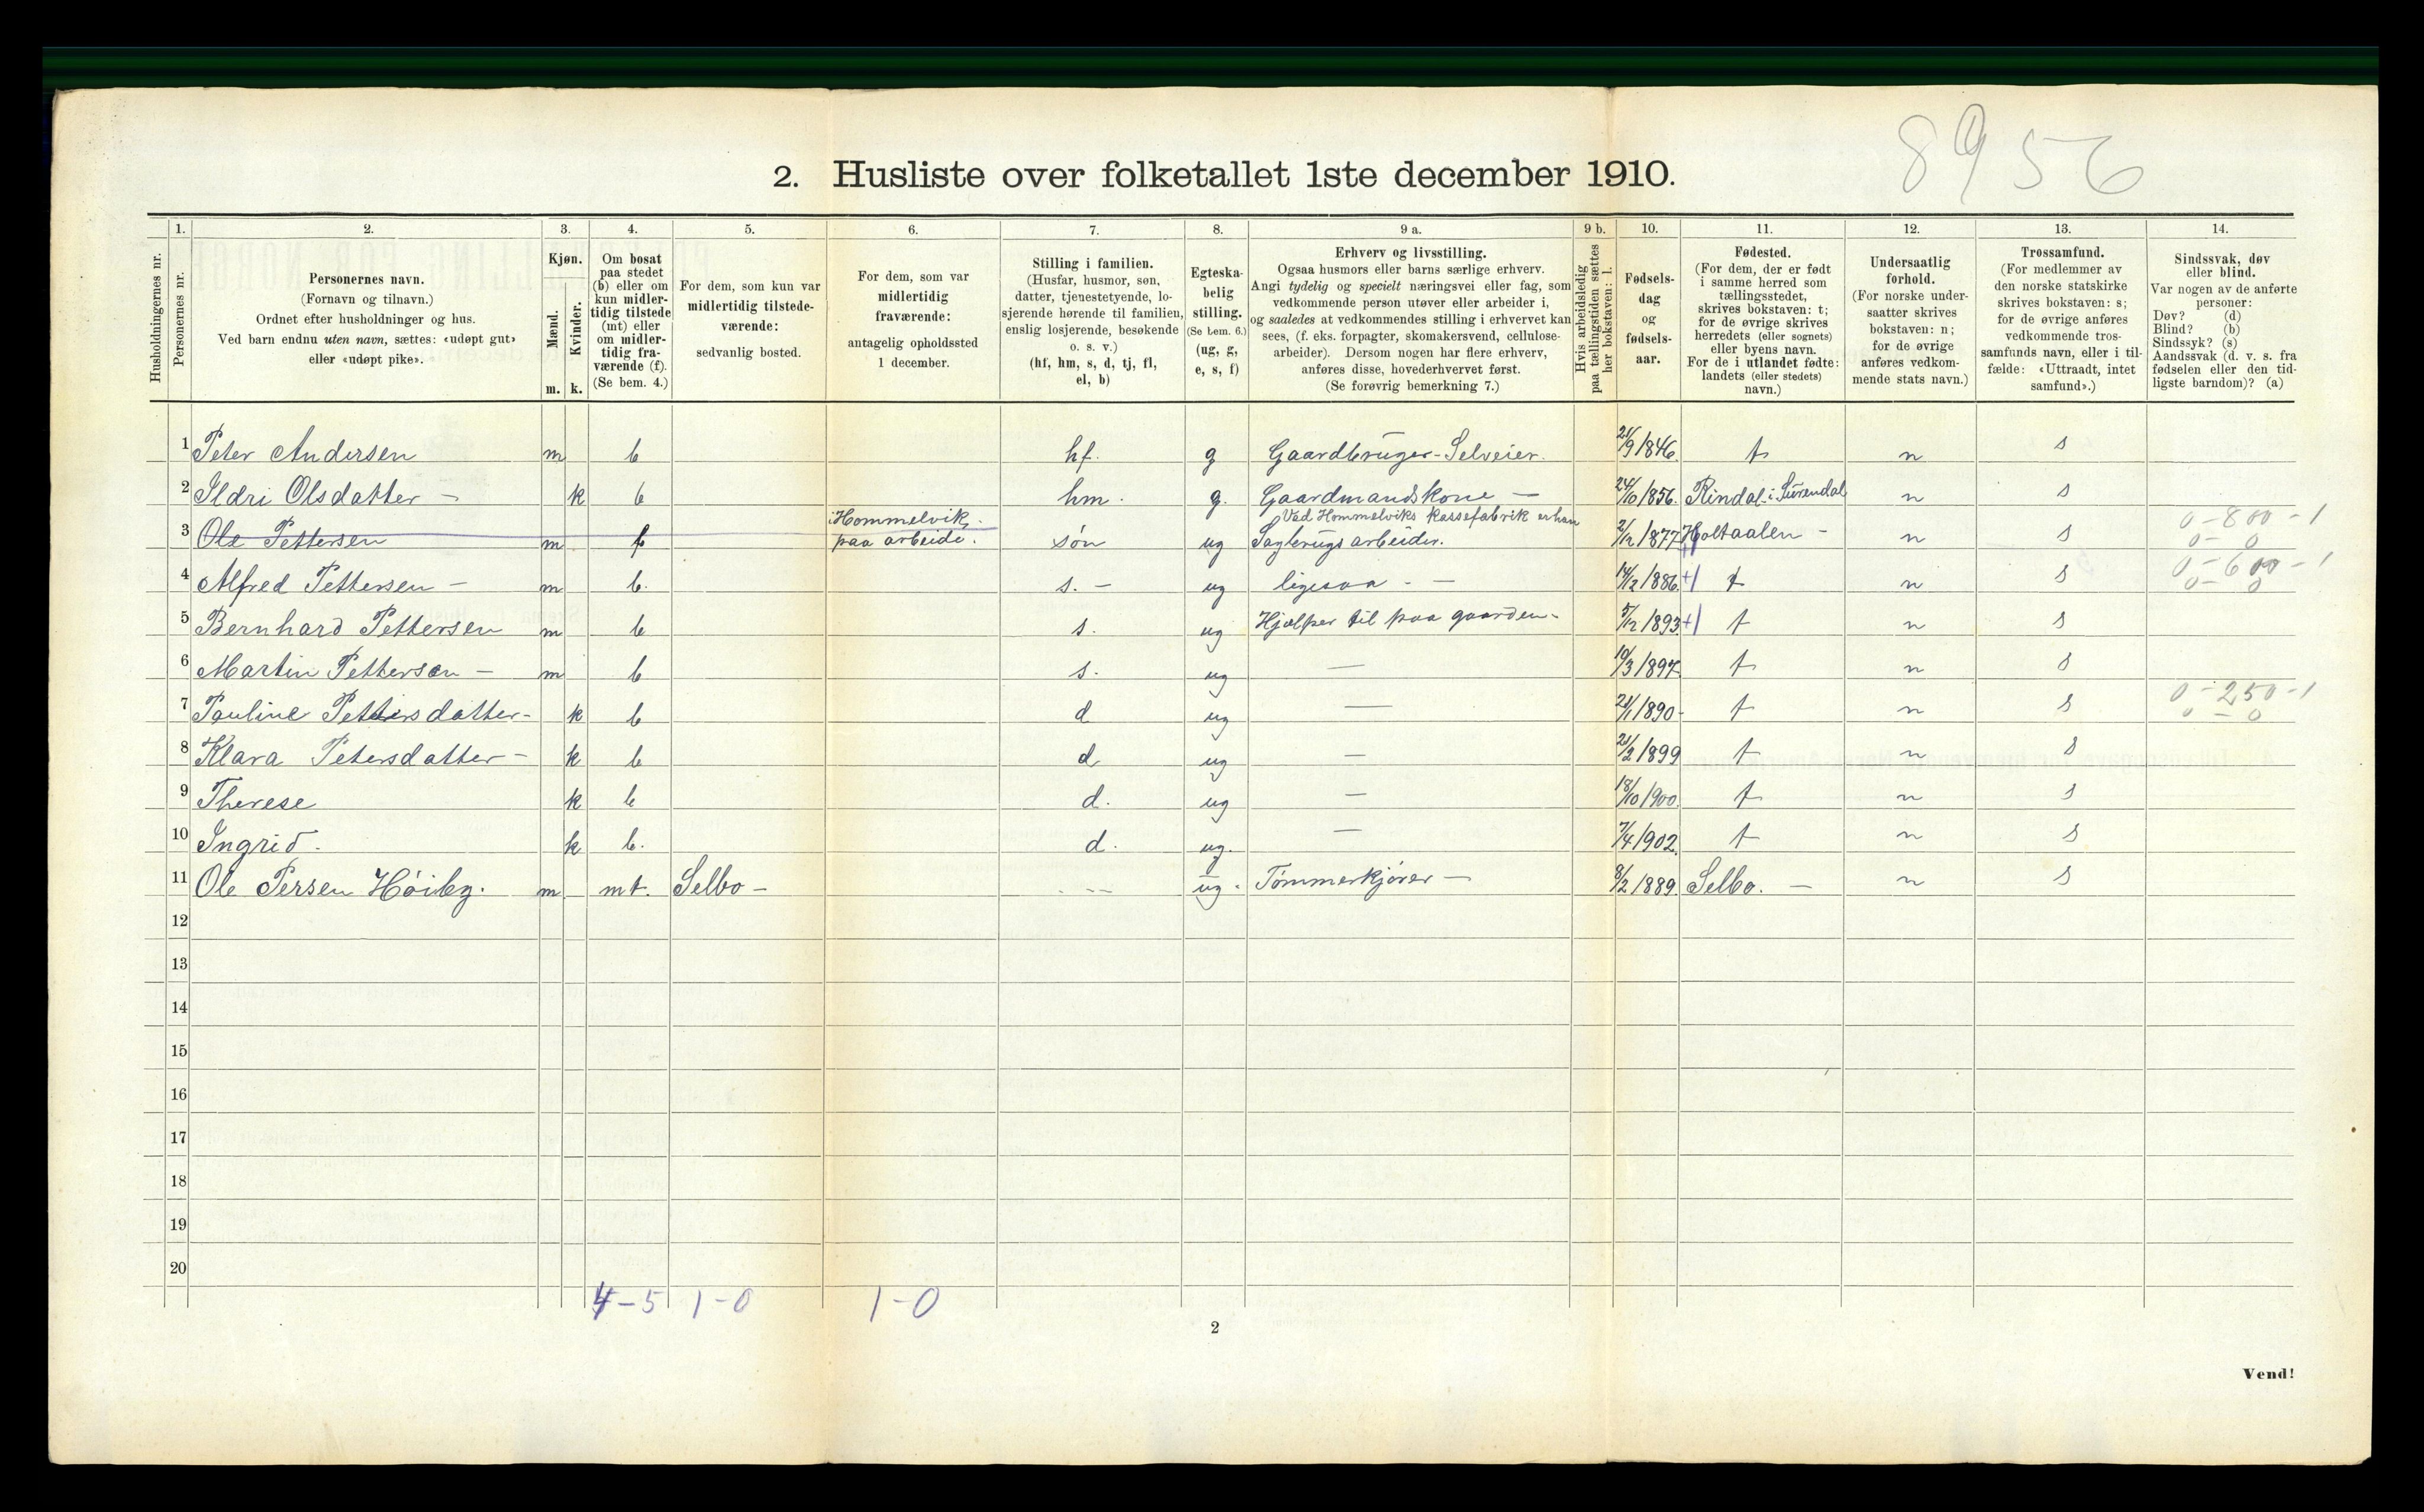 8956
2. Husliste over folketallet 1ste december 1910.
Husholdningernes nr.
1. Personernes nr.
2. Personernes navn.
(Fornavn og tilnavn.)
Ordnet efter husholdninger og hus.
Ved barn endnu uten navn, sættes: «udøpt gut»
eller «udøpt pike».
3. Kjøn.
Mænd. m.
Kvinder. k.
4. Om bosat
paa stedet
(b) eller om
kun midler-
tidig tilstede
(mt) eller
om midler-
tidig fra-
værende (f).
(Se bem. 4.)
5. For dem, som kun var
midlertidig tilstede-
værende:
sedvanlig bosted.
6. For dem, som var
midlertidig
fraværende:
antagelig opholdssted
1 december.
7. Stilling i familien.
(Husfar, husmor, søn,
datter, tjenestetyende, lo-
sjerende hørende til familien,
enslig losjerende, besøkende
o. s. v.)
(hf, hm, s, d, tj, fl,
el, b)
8. Egteska-
belig
stilling.
(Se bem. 6.)
(ug, g,
e, s, f)
9 a. Erhverv og livsstilling.
Ogsaa husmors eller barns særlige erhverv.
Angi tydelig og specielt næringsvei eller fag, som
vedkommende person utøver eller arbeider i,
og saaledes at vedkommendes stilling i erhvervet kan
sees, (f. eks. forpagter, skomakersvend, cellulose-
arbeider). Dersom nogen har flere erhverv,
anføres disse, hovederhvervet først.
(Se forøvrig bemerkning 7.)
9 b. Hvis arbeidsledig
paa tællingstiden sættes
her bokstaven: l.
10. Fødsels-
dag
og
fødsels-
aar.
11. Fødested.
(For dem, der er født
i samme herred som
tællingsstedet,
skrives bokstaven: t;
for de øvrige skrives
herredets (eller sognets)
eller byens navn.
For de i utlandet fødte:
landets (eller stedets)
navn.)
12. Undersaatlig
forhold.
(For norske under-
saatter skrives
bokstaven: n;
for de øvrige
anføres vedkom-
mende stats navn.)
13. Trossamfund.
(For medlemmer av
den norske statskirke
skrives bokstaven: s;
for de øvrige anføres
vedkommende tros-
samfunds navn, eller i til-
fælde: «Uttraadt, intet
samfund».)
14. Sindssvak, døv
eller blind.
Var nogen av de anførte
personer:
Døv? (d)
Blind? (b)
Sindssyk? (s)
Aandssvak (d. v. s. fra
fødselen eller den tid-
ligste barndom)? (a)
1 Peter Andersen m b hf. g Gaardbruger-Selveier. 21/9 1846. t n s
2 Ildri Olsdatter - k b hm. g. Gaardmandskone - 24/10 1856. Rindal i Surendal n s
3 Ole Pettersen m f i Hommelvik paa arbeide. søn ug Ved Hommelviks kassefabrik er han Sagbrugsarbeider. 2/12 1877 Holtaalen - n s 0-800-1 0-0
4 Alfred Pettersen - m b. s. - ug ligesaa - - 14/12 1886. +1 t n s 0-600-1 0-0
5 Bernhard Pettersen m b s. ug Hjælper til paa gaarden - 5/12 1893 +1 t n s
6 Martin Pettersen - m b s. ug — 10/3 1897 t n s
7 Pauline Pettersdatter - k b d ug — 21/1 1890 - t n s 0-250-1 0-0
8 Klara Petersdatter - k b d ug — 21/2 1899 t n s
9 Therese k b d. ug — 18/10 1900. t n s
10 Ingrid. k b. d. ug. — 7/4 1902. t n s
11 Ole Persen Höiby. m mt. Selbo - - -- ug. Tømmerkjører - 8/2 1889. Selbo. - n s
12
13
14
15
16
17
18
19
20
4-5 1-0 1-0
2
Vend!